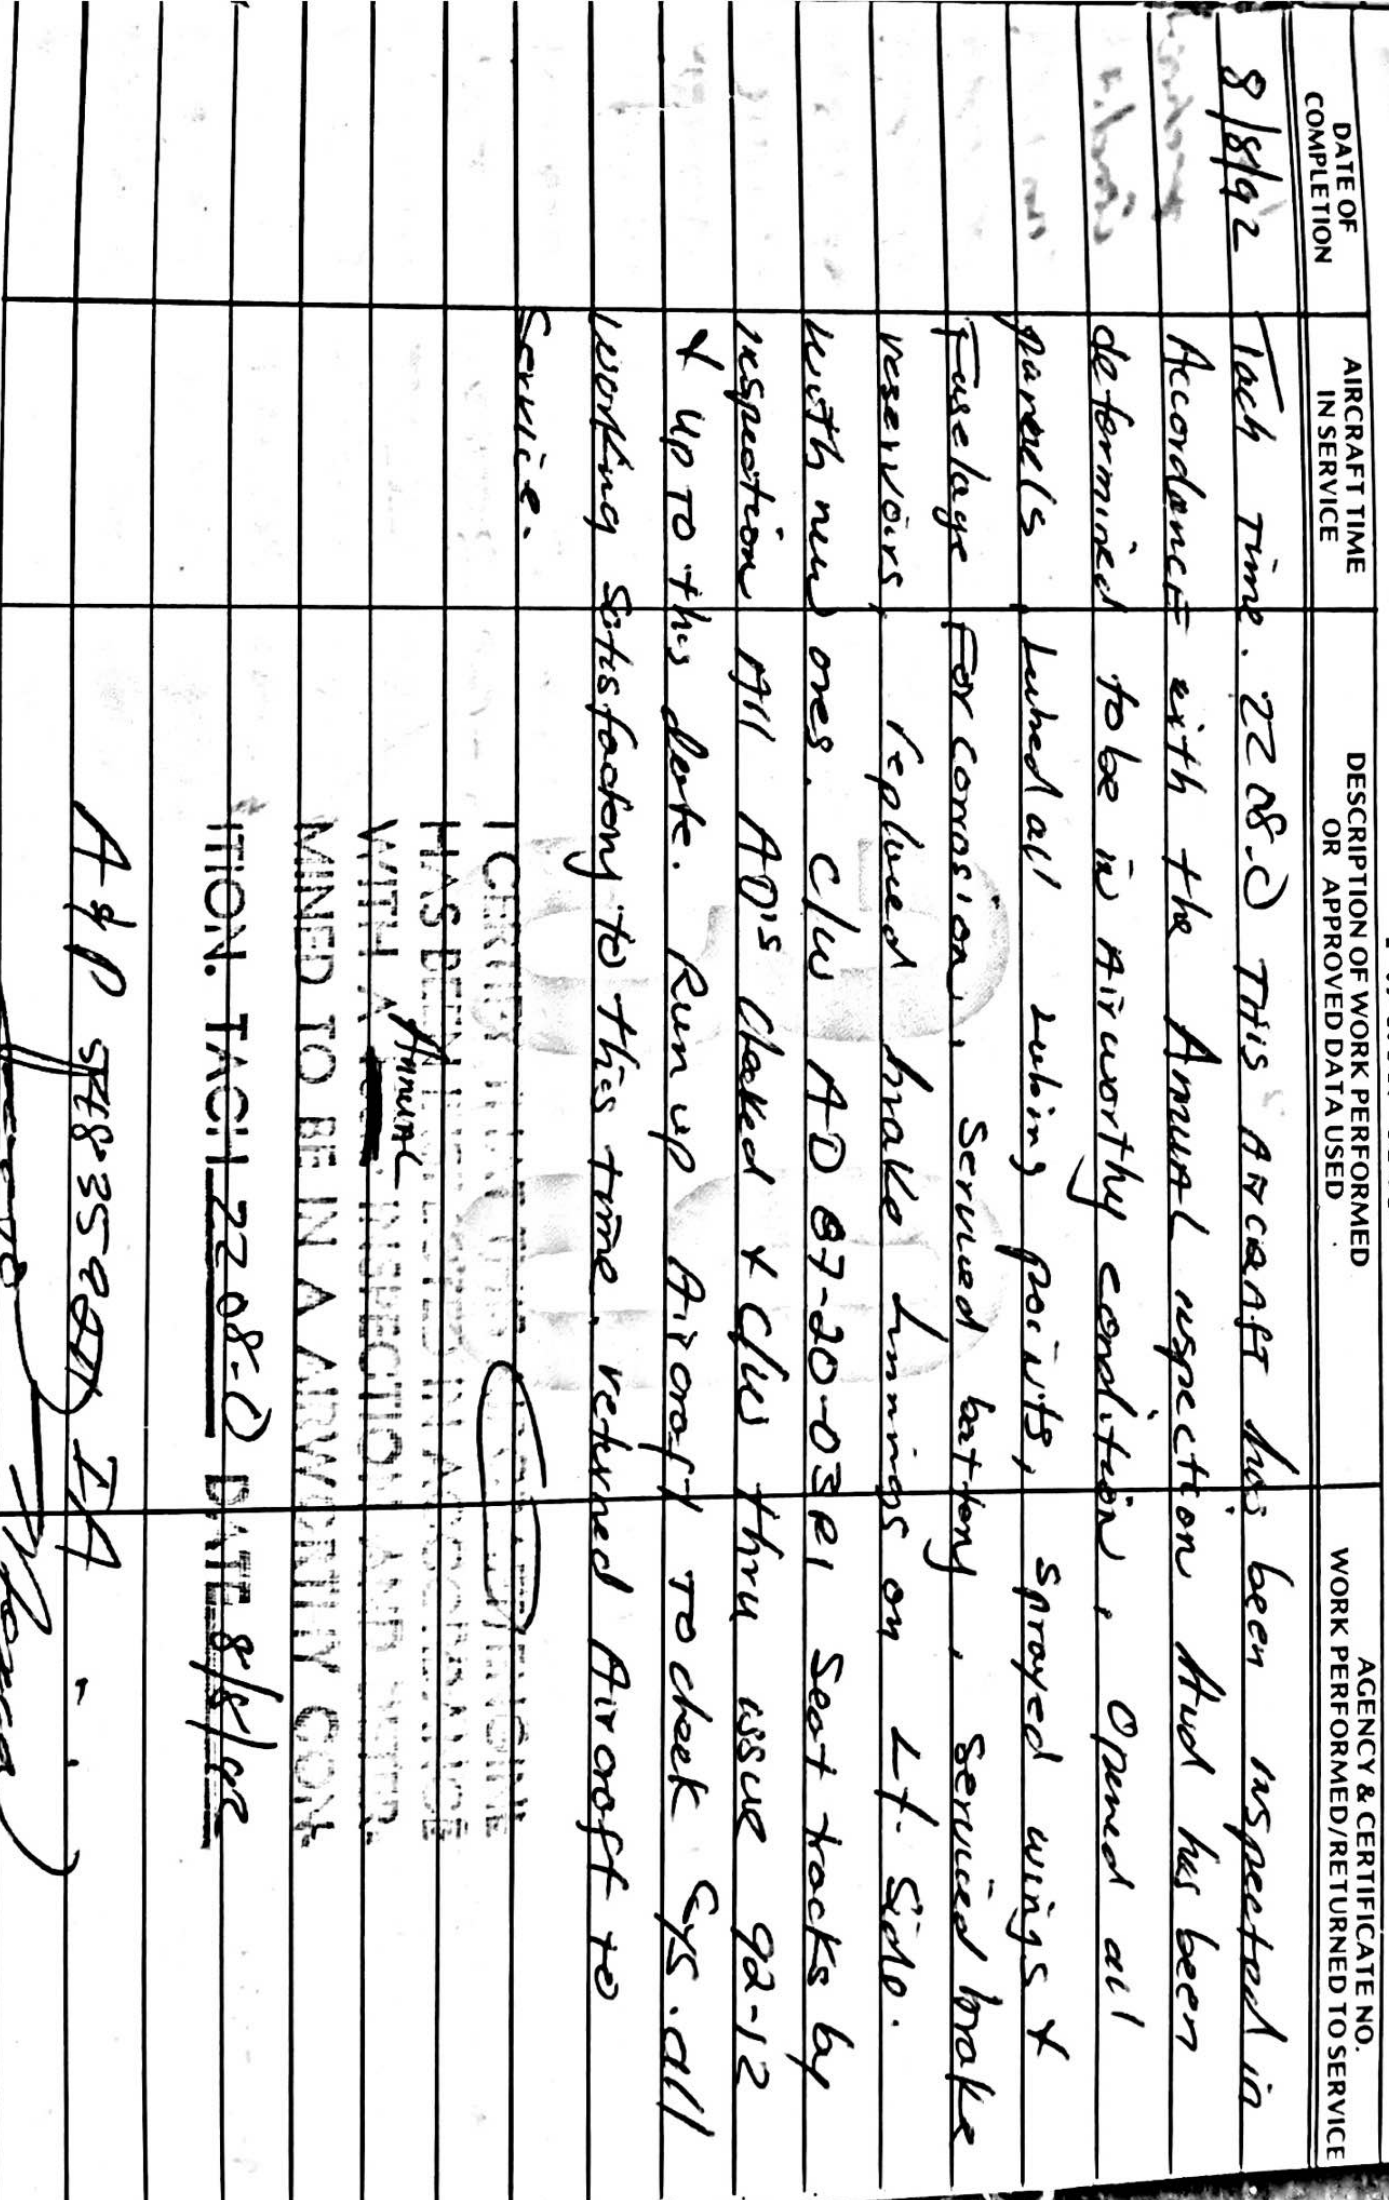 DATE OF COMPLETION
AIRCRAFT TIME IN SERVICE
DESCRIPTION OF WORK PERFORMED OR APPROVED DATA USED
AGENCY & CERTIFICATE NO. WORK PERFORMED/RETURNED TO SERVICE
8/8/92 Tach Time. 2208.0 THis AircraFT has been inspected in
AccordancE with the AnnuAL inspection And has been
determined to be in Airworthy condition, Opened all
panels, Lubed all Lubing points, sprayed wings &
Fuselage For corrosion, Serviced battery, Serviced brake
reservoirs, replaced brake Linnings on Lt. Side.
with new ones. C/W AD 87-20-03R1 Seat tracks by
inspection All AD's checked & C/W thru issue 92-12
& up TO this date. Run up Aircraft To check Sys. all
working satisfactory to this time. returned Aircraft to
Service.
I CERTIFY THAT THIS ENGINE
HAS BEEN INSPECTED IN ACCORDANCE
WITH A Annual INSPECTION AND DETER
MINED TO BE IN A AIRWORTHY CON
ITION. TACH 2208.0 DATE 8/8/92
A&P IA